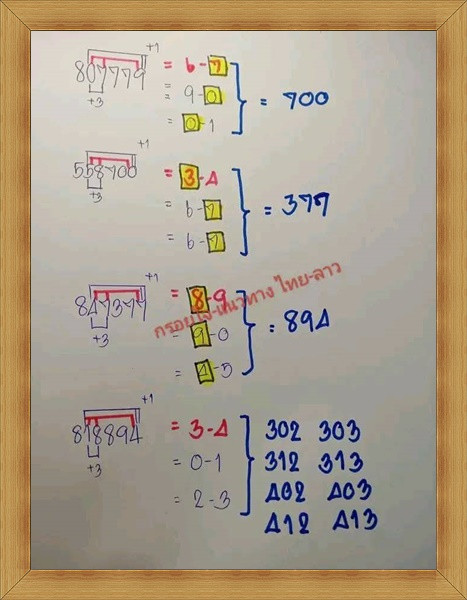 +1
807779 = 6-7
+3
= 9-0 = 700
= 0-1
+1
558700 = 3-4
+3
= 6-7 = 377
= 6-7
+1
847377 = 8-9
+3
= 9-0 = 894
= 4-5
+1
818894 = 3-4 302 303
+3
= 0-1 312 313
= 2-3 402 403
412 413
กรอยใจ-แนวทาง ไทย-ลาว